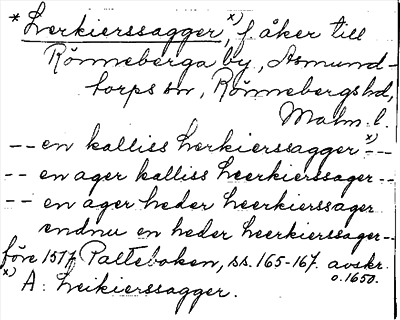 * Lerkierssagger, x) f. åker till
Rönneberga by, Asmund-
torps sn, Rönnebergs hd,
Malm. l.
-- en kalliss Lerkierssagger x) --
-- en ager kalliss Leerkierssager --
-- en ager heder Leerkierssager
endnu en heder Leerkierssager --
före 1577 Palteboken, ss. 165-167. avskr.
o. 1650.
x) A: Leikierssagger.